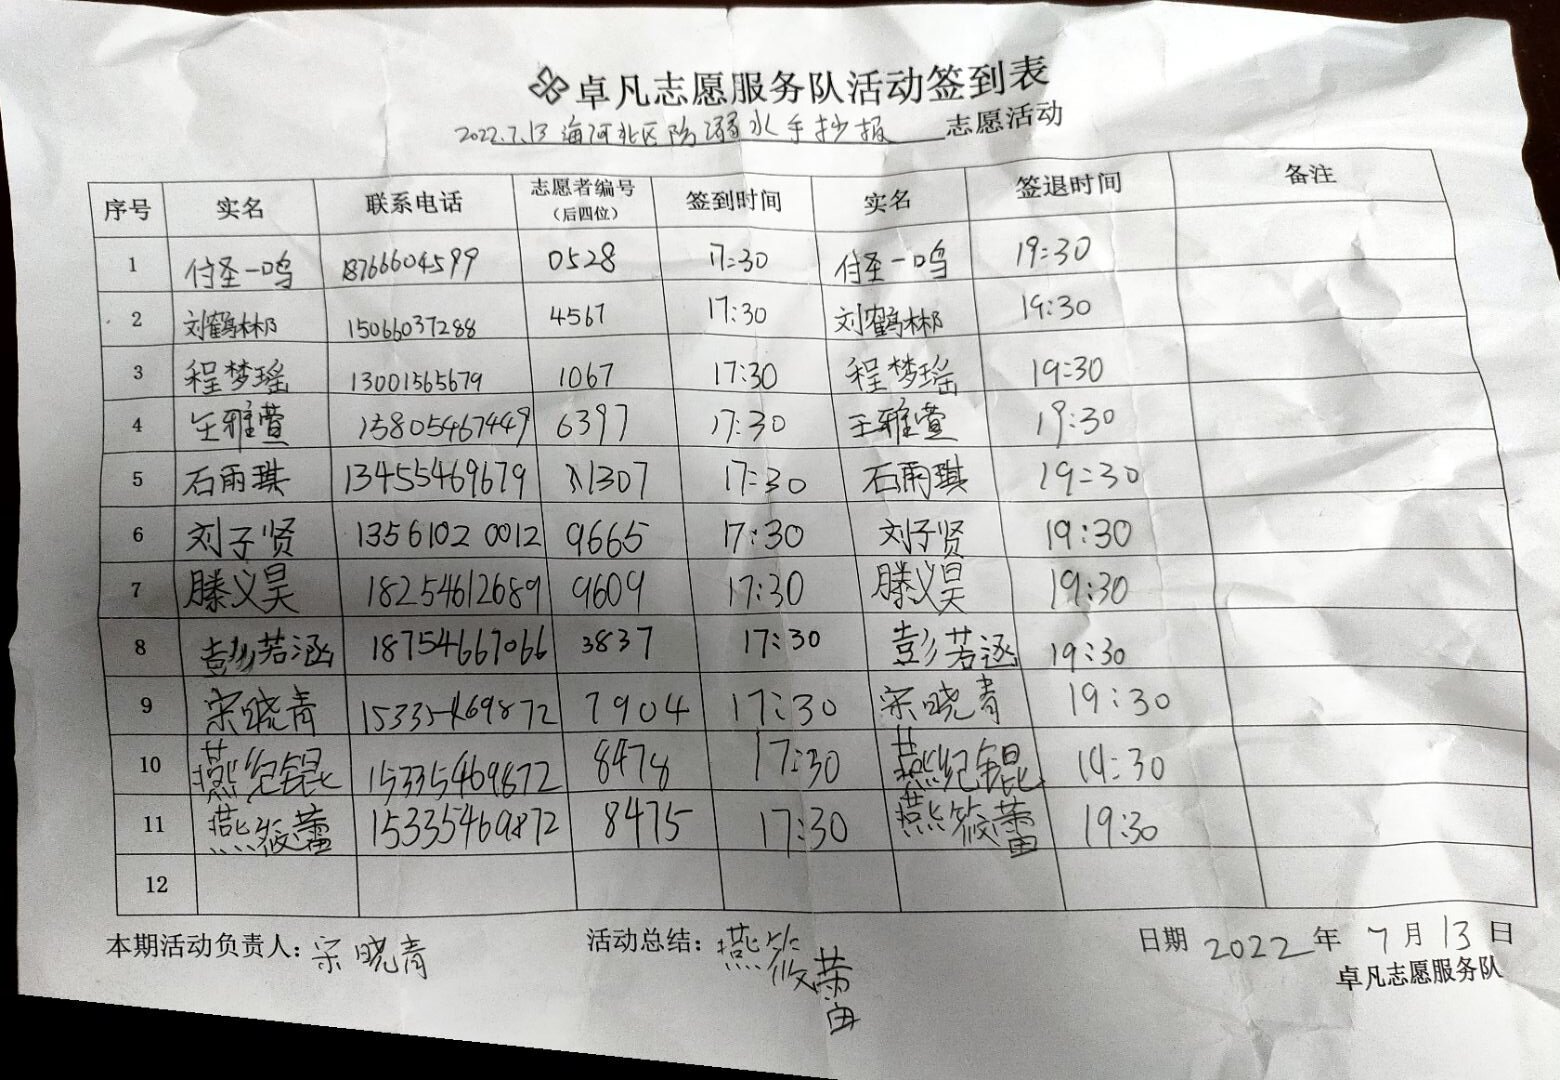 卓凡志愿服务队活动签到表
2022.7.13 海河北区防溺水手抄报 志愿活动
序号 实名 联系电话 志愿者编号（后四位） 签到时间 实名 签退时间 备注
1 付圣一鸣 18766604599 0528 17:30 付圣一鸣 19:30
2 刘鹤彬 15066037288 4567 17:30 刘鹤彬 19:30
3 程梦瑶 13001565679 1067 17:30 程梦瑶 19:30
4 王雅萱 15805467449 6397 17:30 王雅萱 19:30
5 石雨琪 13455469679 1307 17:30 石雨琪 19:30
6 刘子贤 13561020012 9665 17:30 刘子贤 19:30
7 滕义昊 18254612689 9609 17:30 滕义昊 19:30
8 彭若涵 18754667066 3837 17:30 彭若涵 19:30
9 宋晓青 15335469872 7904 17:30 宋晓青 19:30
10 燕纪锟 15335469872 8478 17:30 燕纪锟 19:30
11 燕筱蕾 15335469872 8475 17:30 燕筱蕾 19:30
12
本期活动负责人：宋晓青 活动总结：燕筱蕾 日期 2022 年 7 月 13 日
卓凡志愿服务队